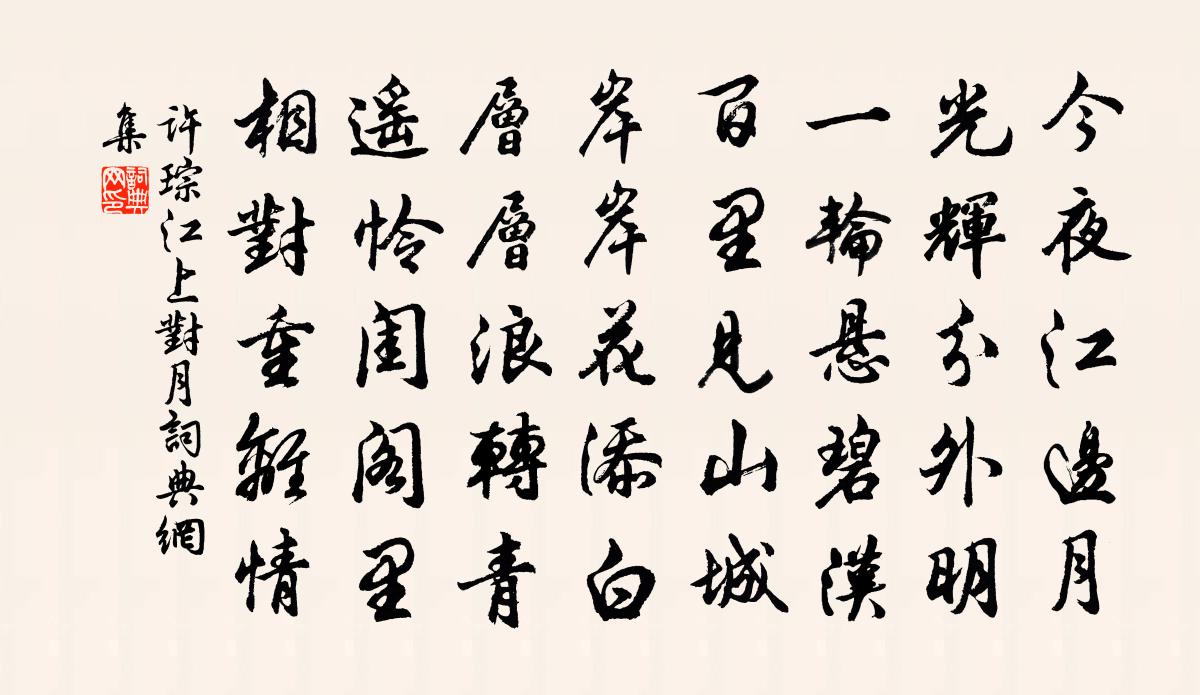 今夜江邊月
光輝分外明
一輪懸碧漢
百里見山城
岸岸花添白
層層浪轉青
遥怜閨閣里
相對重離情
许琮江上對月詞典網
集
詞典
网印